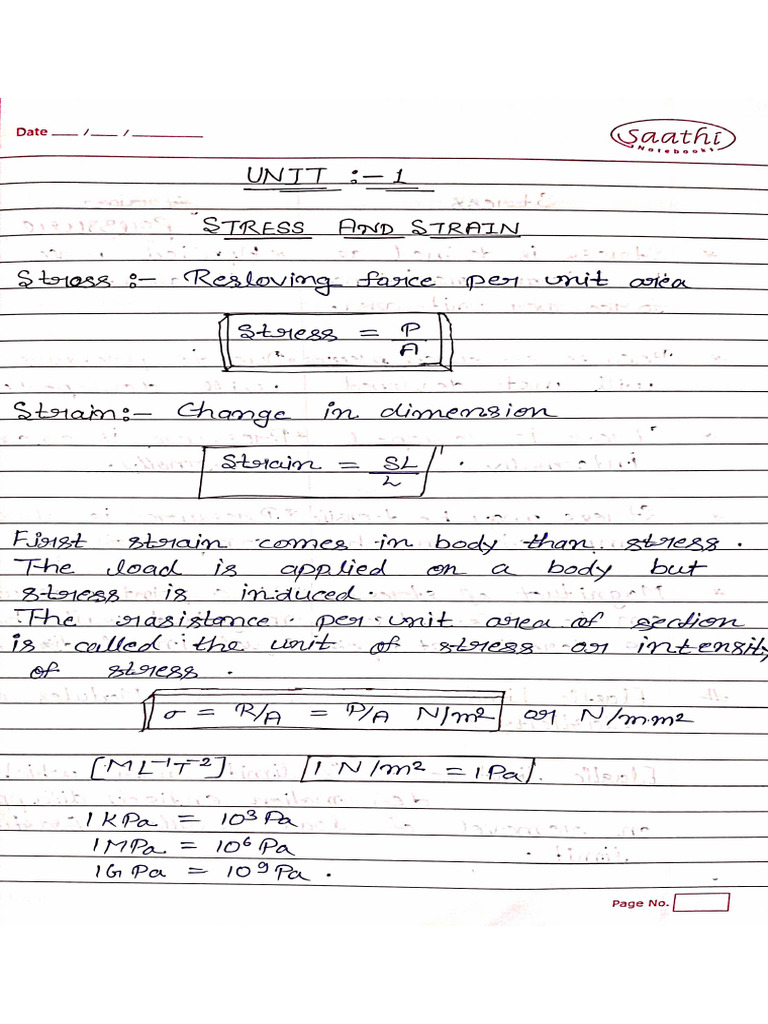 Date ___ / ___ / ______
Saathi
Notebooks
UNIT :- 1
STRESS AND STRAIN
Stress :- Resloving farce per unit area
Stress = P/A
Strain:- Change in dimension
Strain = SL/L
First strain comes in body than stress.
The load is applied on a body but
stress is induced.
The rasistance per unit area of section
is called the unit of stress or intensity
of stress.
σ = R/A = P/A N/m² or N/mm²
[ML⁻¹T⁻²] 1 N/m² = 1Pa
1 KPa = 10³Pa
1 MPa = 10⁶Pa
1 GPa = 10⁹Pa.
Page No.